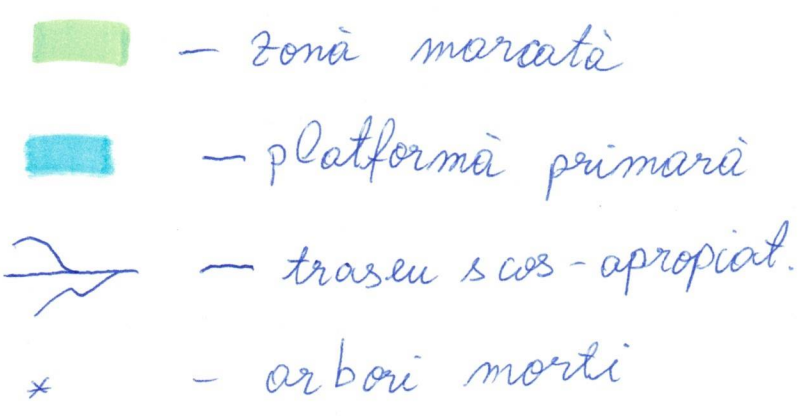 - zonă marcată
- platformă primară
- traseu scos-apropiat.
- arbori morti